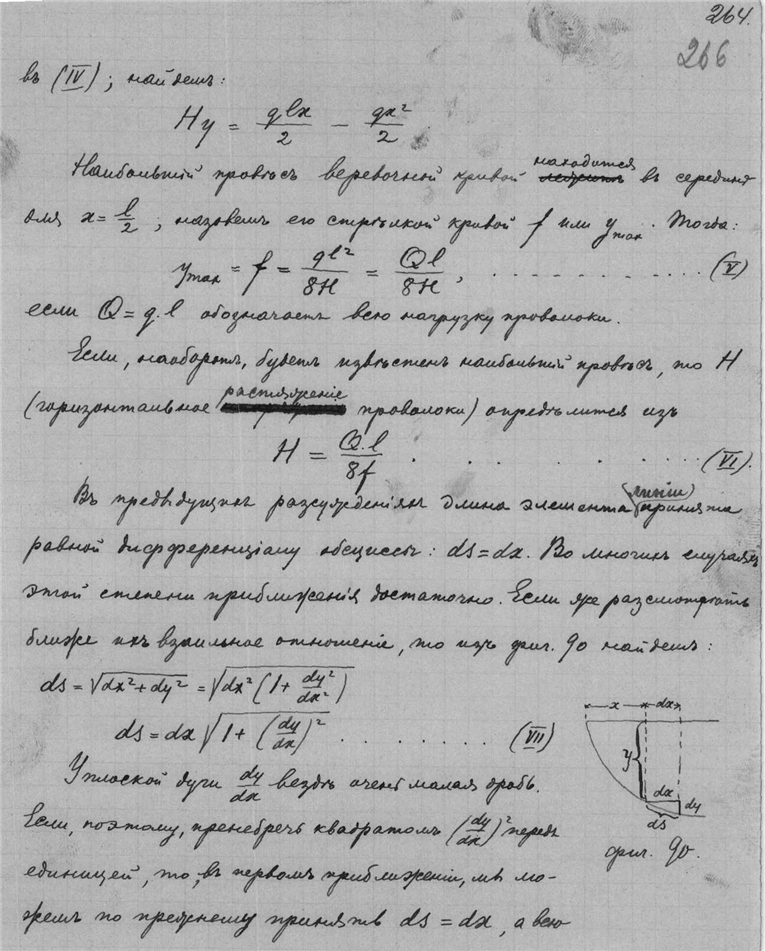 264.
266
въ (IV); найдемъ:
Hy = qlx/2 − qx²/2
Наибольшій провѣсъ веревочной кривой находится въ серединѣ
для x = l/2; назовемъ его стрѣлкой кривой f или y max. Тогда:
y max = f = ql²/8H = Ql/8H, . . . . . . . . . . . . (V)
если Q = q.l обозначаетъ всю нагрузку проволоки.
Если, наоборотъ, будетъ извѣстенъ наибольшій провѣсъ, то H
(горизонтальное растяженіе проволоки) опредѣлится изъ
H = Q.l/8f . . . . . . (VI).
Въ предыдущихъ разсужденіяхъ длина элемента линіи принята
равной дифференціалу абсциссы: ds = dx. Во многихъ случаяхъ
этой степени приближенія достаточно. Если же разсмотрѣть
ближе ихъ взаимное отношеніе, то изъ фиг. 90 найдемъ:
ds = √(dx² + dy²) = √(dx² (1 + dy²/dx²))
ds = dx √(1 + (dy/dx)²) . . . . . . . . (VII)
У плоской дуги dy/dx вездѣ очень малая дробь.
Если, поэтому, пренебречь квадратомъ (dy/dx)² передъ
единицей, то, въ первомъ приближеніи, мы мо-
жемъ по прежнему принять ds = dx, а всю
x dx
y
dx
dy
ds
фиг. 90.